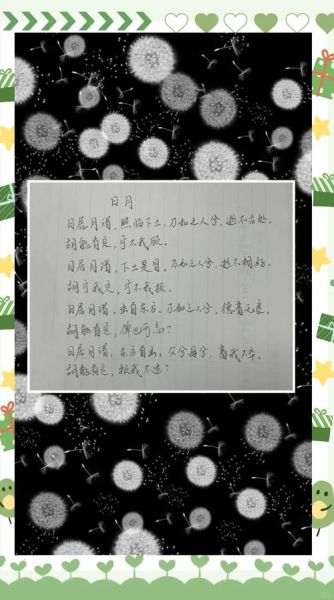 日月
日居月诸,照临下土。乃如之人兮,逝不古处。
胡能有定,宁不我顾。
日居月诸,下土是冒。乃如之人兮,逝不相好。
胡能有定,宁不我报。
日居月诸,出自东方。乃如之人兮,德音无良。
胡能有定,俾也可忘?
日居月诸,东方自出。父兮母兮,畜我不卒。
胡能有定,报我不述?